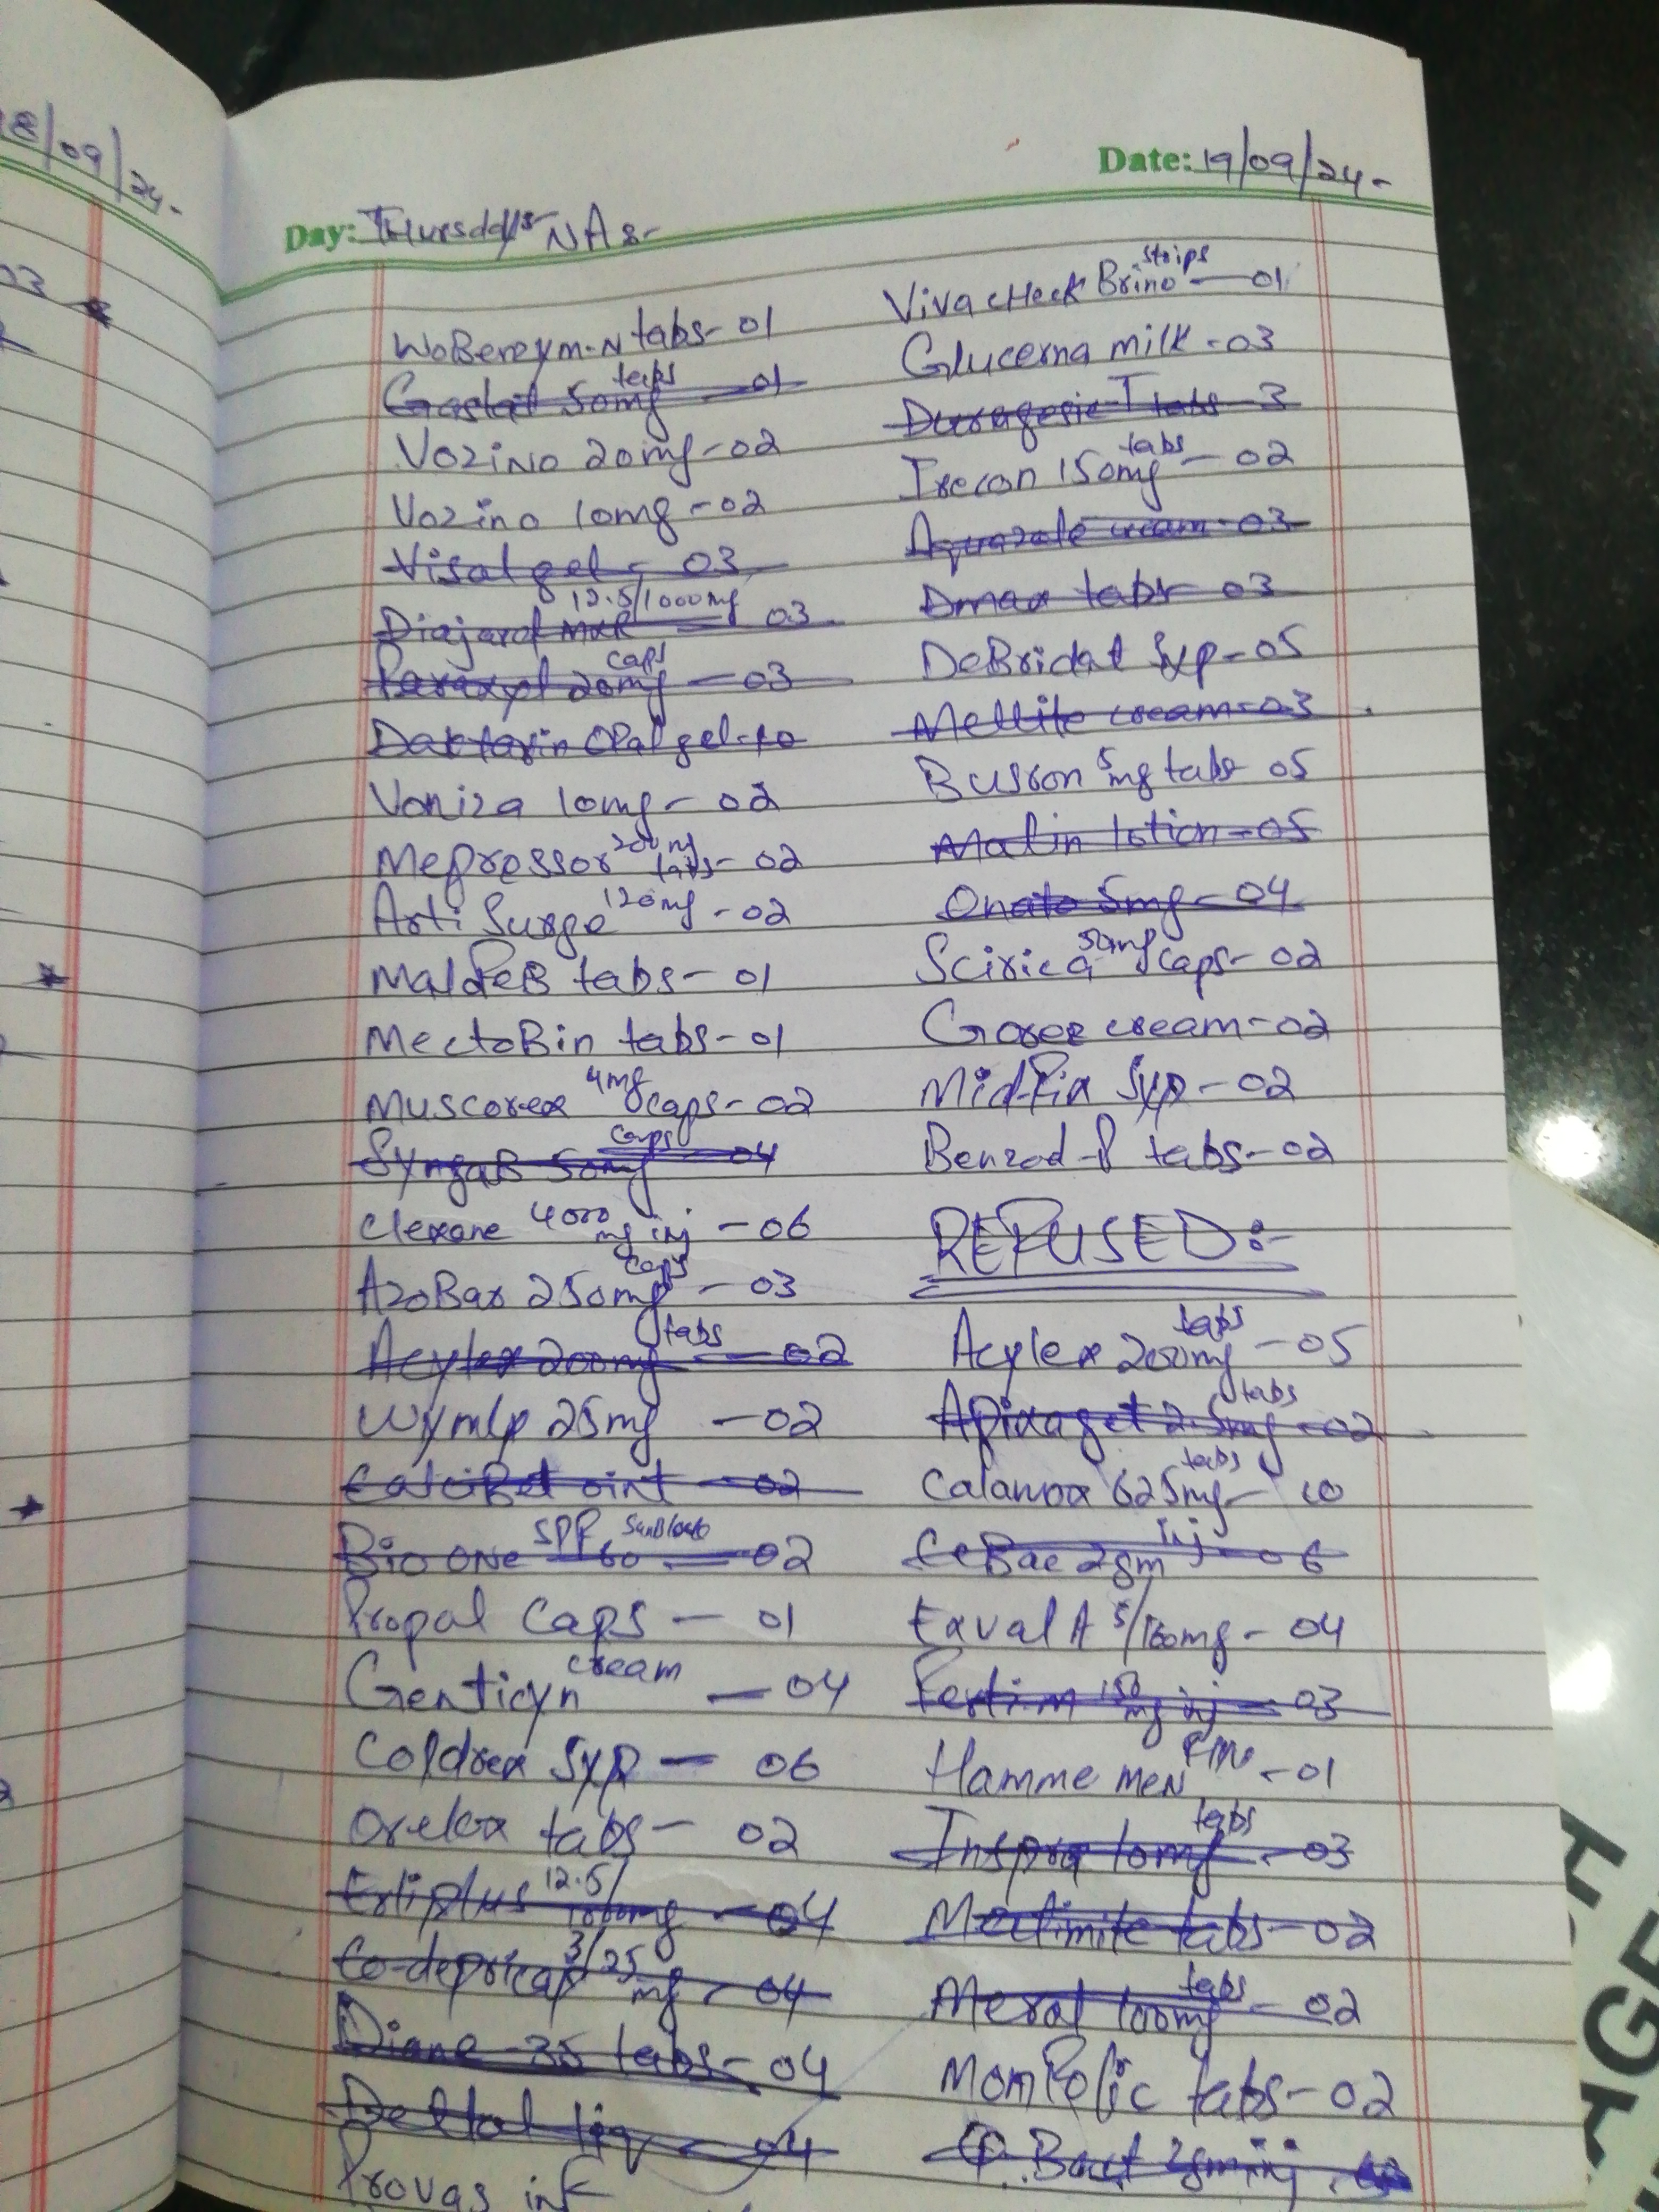 8/09/24-
03
Date: 19/09/24-
Day: Thursday's NAs-
WoBenzym-N tabs- 01
Gaslat 50mg tabs - 01
Vozino 20mg - 02
Vozino 10mg - 02
Visal gel - 03
Diajard MXR 12.5/1000mg - 03
Paraxyl 20mg caps - 03
Daktarin ORal gel - 10
Voniza 10mg - 02
Mepressor 200mg tabs - 02
Arti Surge 120mg - 02
MaldeB tabs - 01
MectoBin tabs - 01
Muscorex 4mg caps - 02
SyngaB 50mg caps - 04
Clexane 4000 mg inj - 06
AzoBax 250mg caps - 03
Acylex 200mg tabs - 02
Wymlp 25mg - 02
oint - 02
Bio ONe SPF 60 SunBlock - 02
Propal caps - 01
Genticyn cream - 04
Coldrex Syp - 06
Orelox tabs - 02
Erliplus 12.5/1000mg - 04
Co-depricap 3/25 mg - 04
Diane-35 tabs - 04
Dettol liq - 04
Provas inf
VivacHeck Brino strips - 01
Glucerna milk - 03
Duragesic-T tabs - 3
Irecon 150mg tabs - 02
Aquazale cream - 03
Dmax tabs - 03
DeBridat Syp - 05
Mellito cream - 03
Busron 5mg tabs 05
Malin lotion - 05
Onato 5mg - 04
Scirica 50mg caps - 02
cream - 02
Midfix Syp - 02
Benzad-P tabs - 02
REFUSED:-
Acylex 200mg tabs - 05
Apixaget 2.5mg tabs - 02
Calamox 625mg tabs - 10
CeBac 2gm inj - 06
Exval A 5/160mg - 04
Fertim 150 mg inj - 03
Hamme MeN - 01
Inspra 10mg tabs - 03
tabs - 02
Meral 100mg tabs - 02
MomFolic tabs - 02
2gm inj
AGE